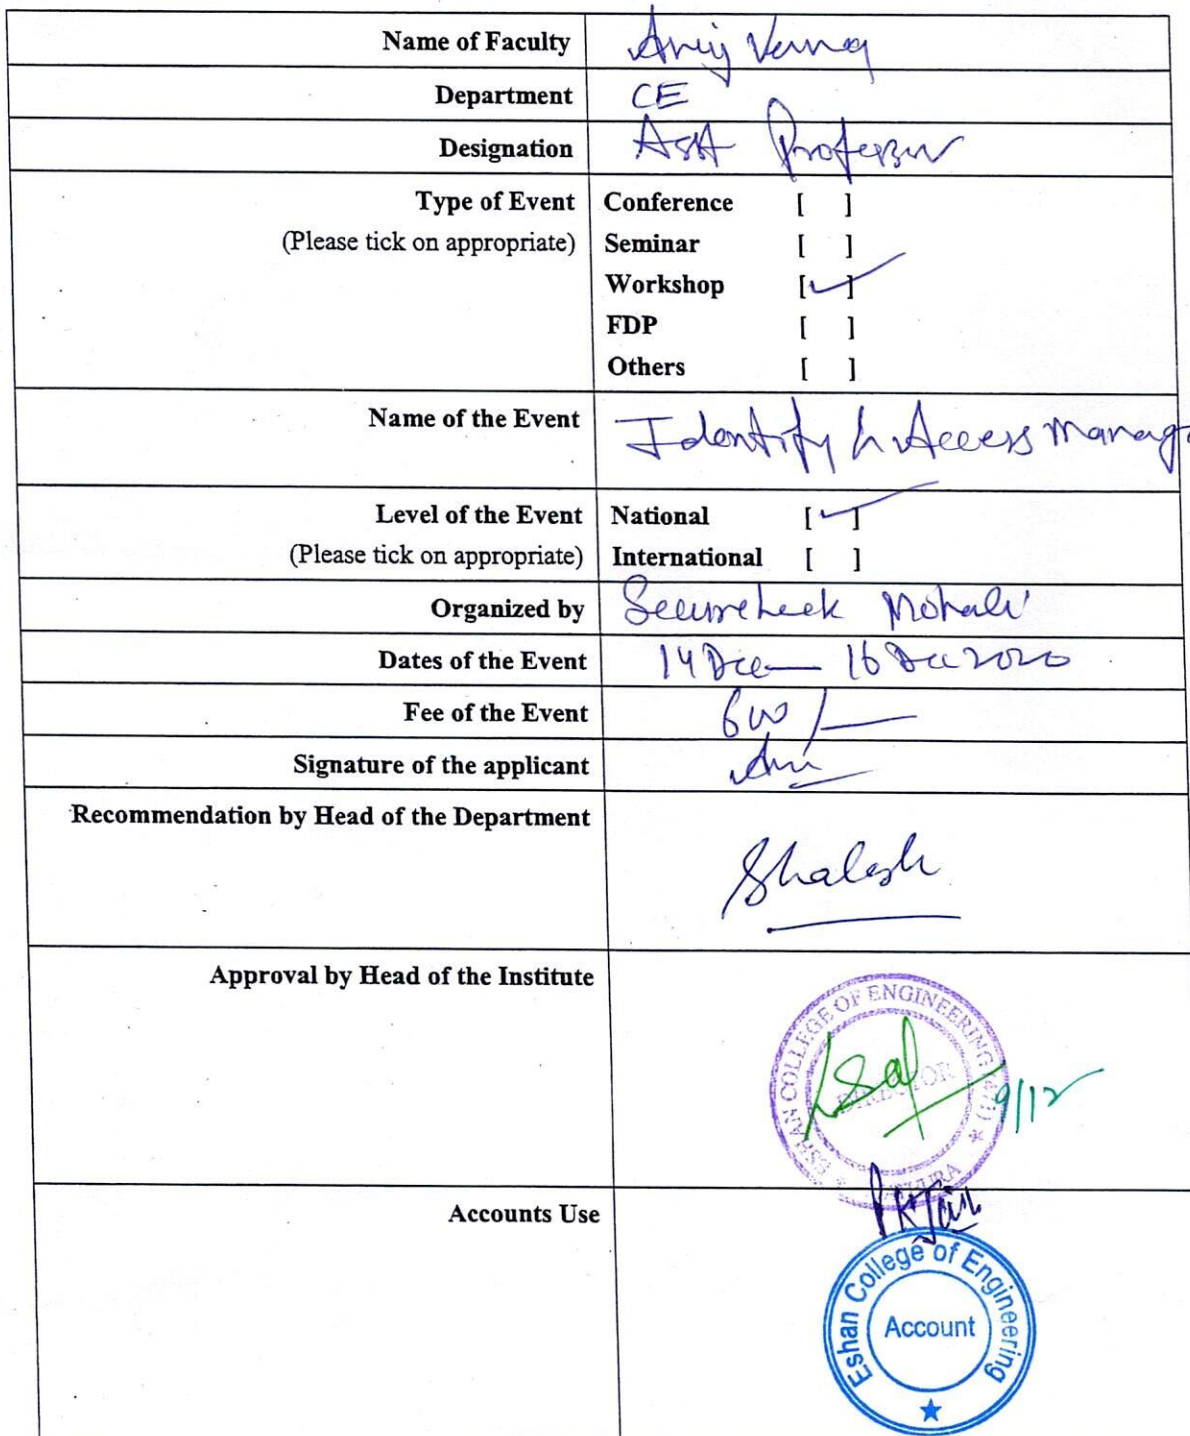 Name of Faculty Anuj Verma
Department CE
Designation Asst Professor
Type of Event Conference [ ]
(Please tick on appropriate) Seminar [ ]
Workshop [✓]
FDP [ ]
Others [ ]
Name of the Event Identify & Access Manag
Level of the Event National [✓]
(Please tick on appropriate) International [ ]
Organized by Mohali
Dates of the Event 14 Dec — 16 Dec 2020
Fee of the Event 600/—
Signature of the applicant
Recommendation by Head of the Department
Shalesh
Approval by Head of the Institute
ESHAN COLLEGE OF ENGINEERING
DIRECTOR
9/12
PKJain
Accounts Use
Eshan College of Engineering
Account